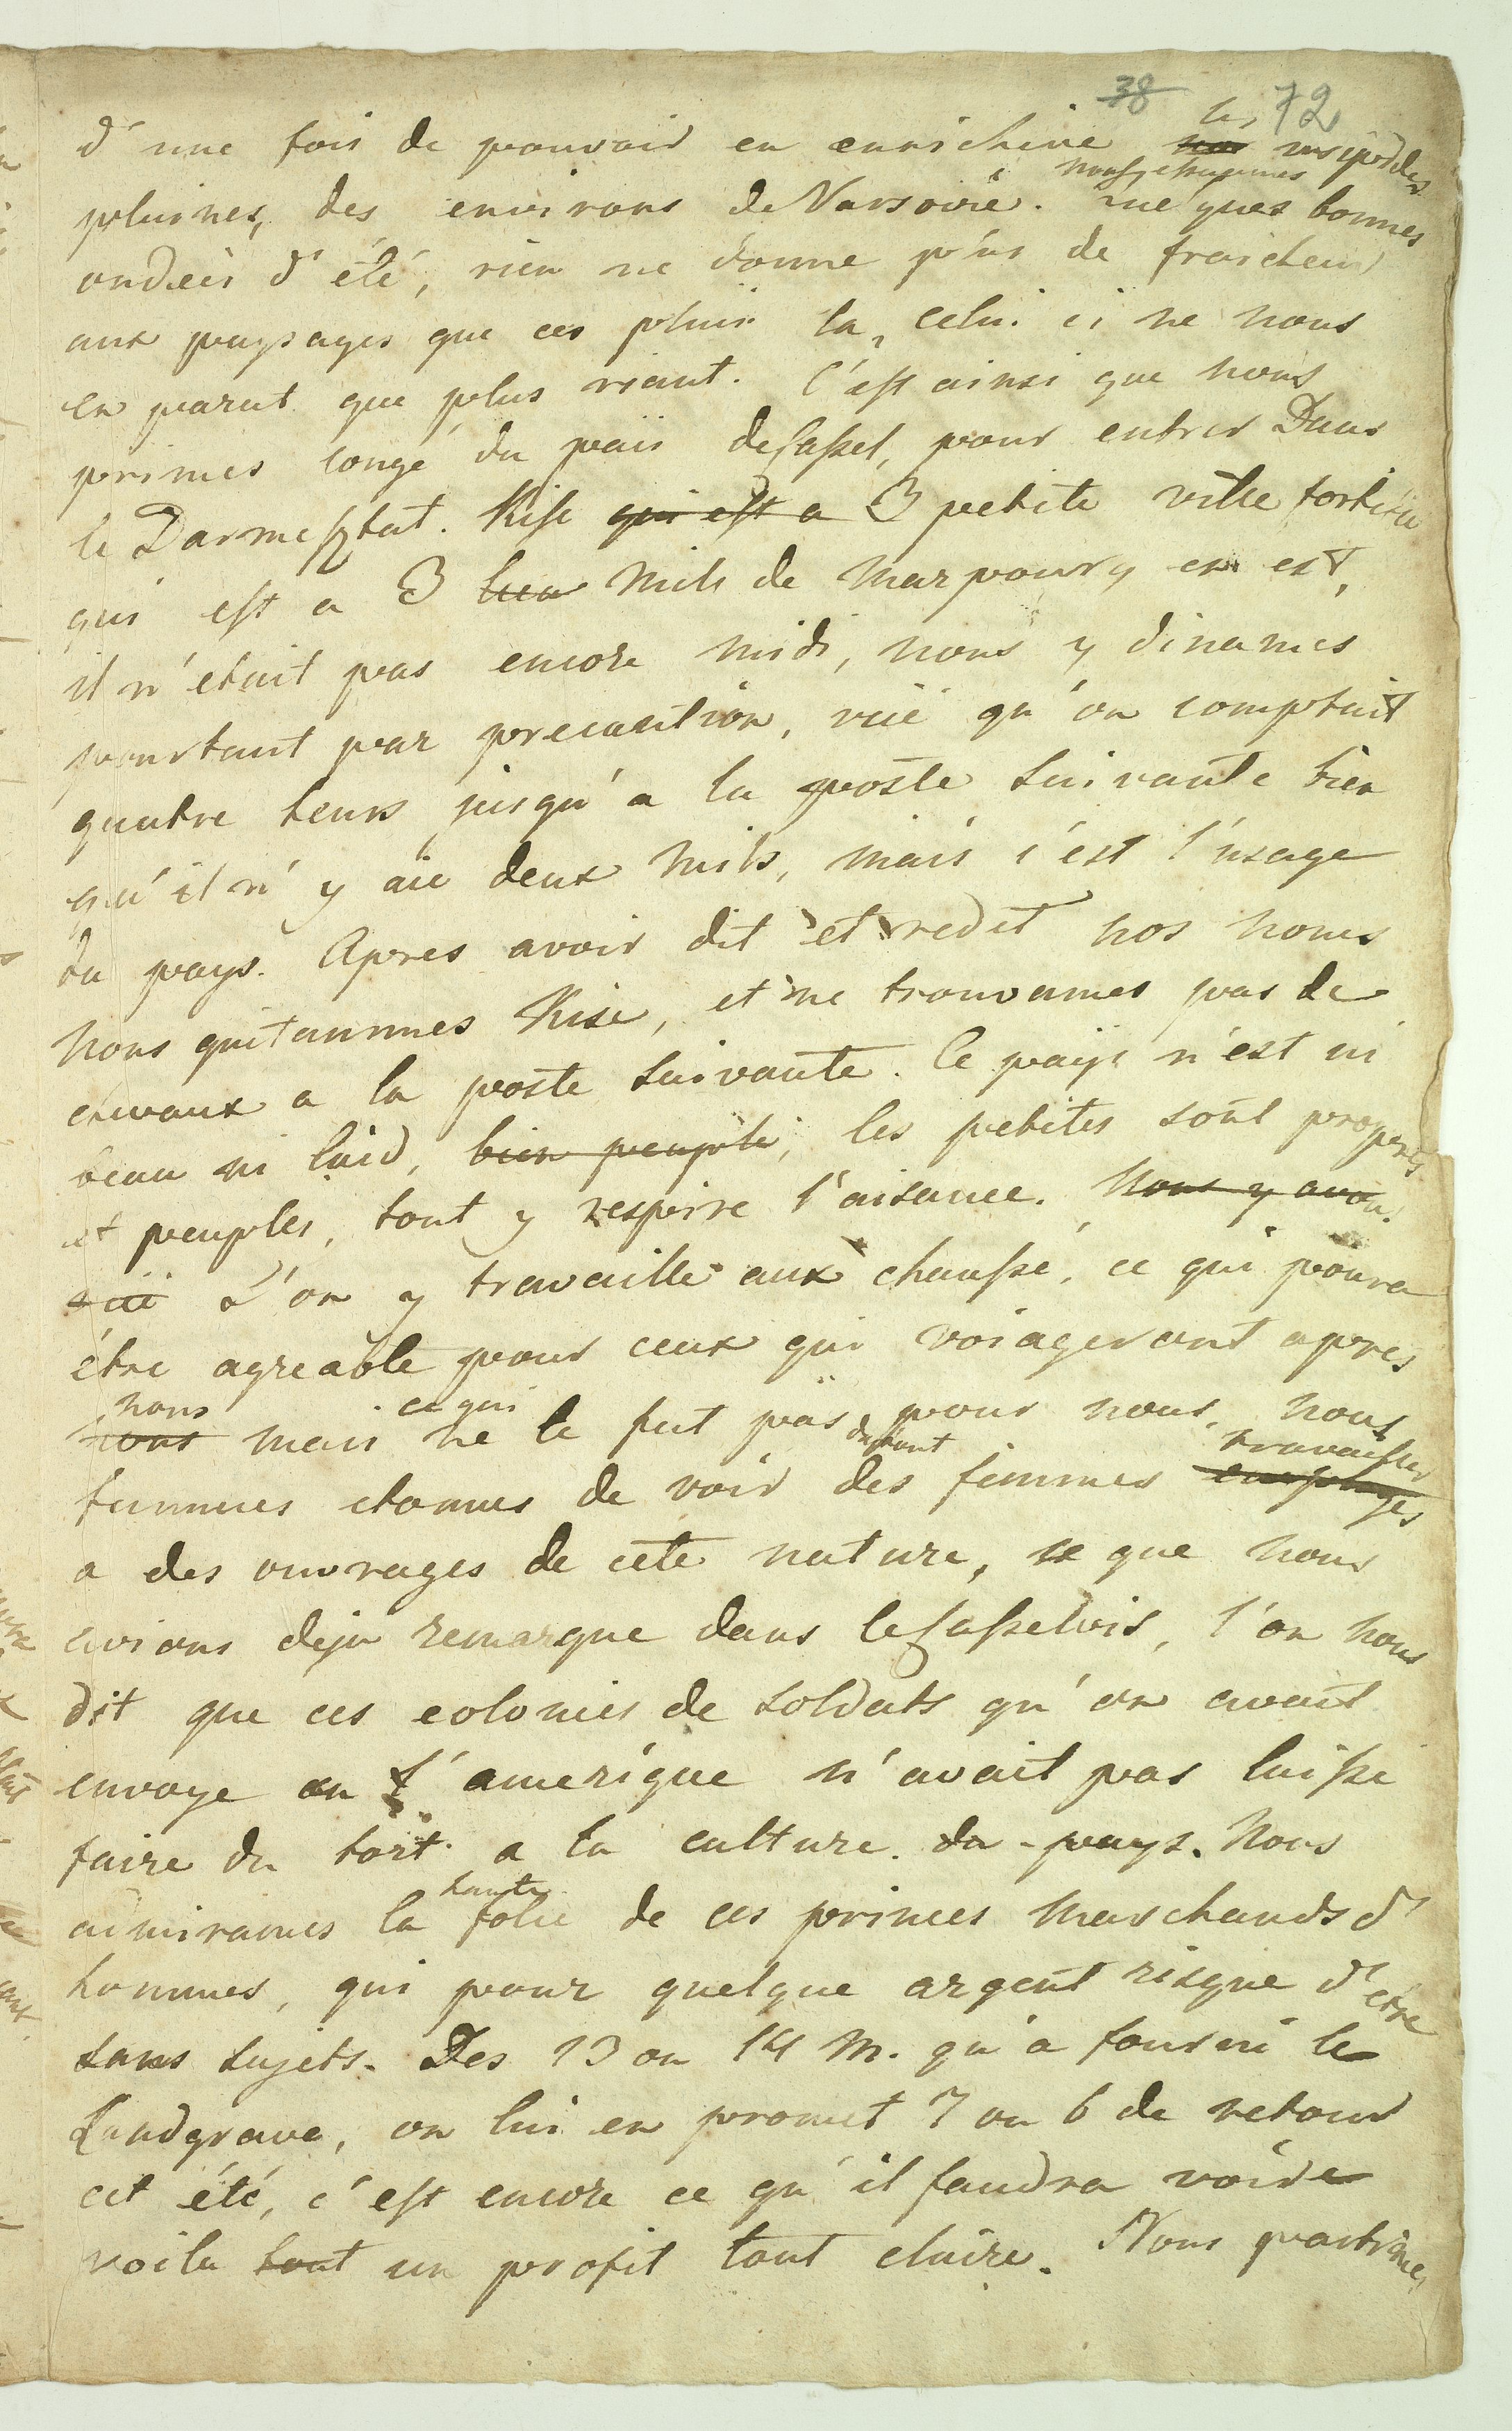 38 72
d'une fois de pouvoir en enrichire nos les insipides
pluines, des environs de Varsovie. nous y essuyames quelques bonnes
ondeis d'été, rien ne donne plus de fraicheur
aux paysages que ces pluis la, celui ci ne nous
en parut que plus riant. C'est ainsi que nous
primes congé du païs de Cassel, pour entrer Dans
le Darmestat. Kise qui est a 3 petite ville fortifiée
qui est a 3 lieu Mils de Marpourg en est,
il n'etait pas encore midi, nous y dinames
pourtant par precaution, vüe qu'on comptait
quatre heurs jusqu'a la poste suivante bien
qu'il n'y aie deux Mils, mais c'est l'usage
du pays. Apres avoir dit et redit nos noms
nous quitammes Kise, et ne trouvames pas de
chevaux a la poste suivante. Ce païs n'est ni
beau ni laid, bien peuplé, les petites sont propres
et peuples, tout y respire l'aisance. Nous y avon
L'on y travaille aux chaussé, ce qui poura
être agreable pour ceux qui voiageront apres
nous nous mais ce qui ne le fut pas pour nous, nous
fumues etonnes de voir des femmes employes travailler
a des ouvrages de cete nature, ce que nous
avions deja remarque dans le Casselois, l'on nous
dit que ces colonies de soldats qu'on avait
envoye en l'amerique n'avait pas laissé
faire du tort a la culture du pays. Nous
admirames la haute folie de ces princes Marchands d'
hommes, qui pour quelque argent risque d'etre
sans sujets. Des 13 ou 14 M. qu'a fourni le
Landgrave, on lui en promet 7 ou 6 de retour
cet été, c'est encore ce qu'il faudra voire
voila tout un profit tout claire. Nous partimes